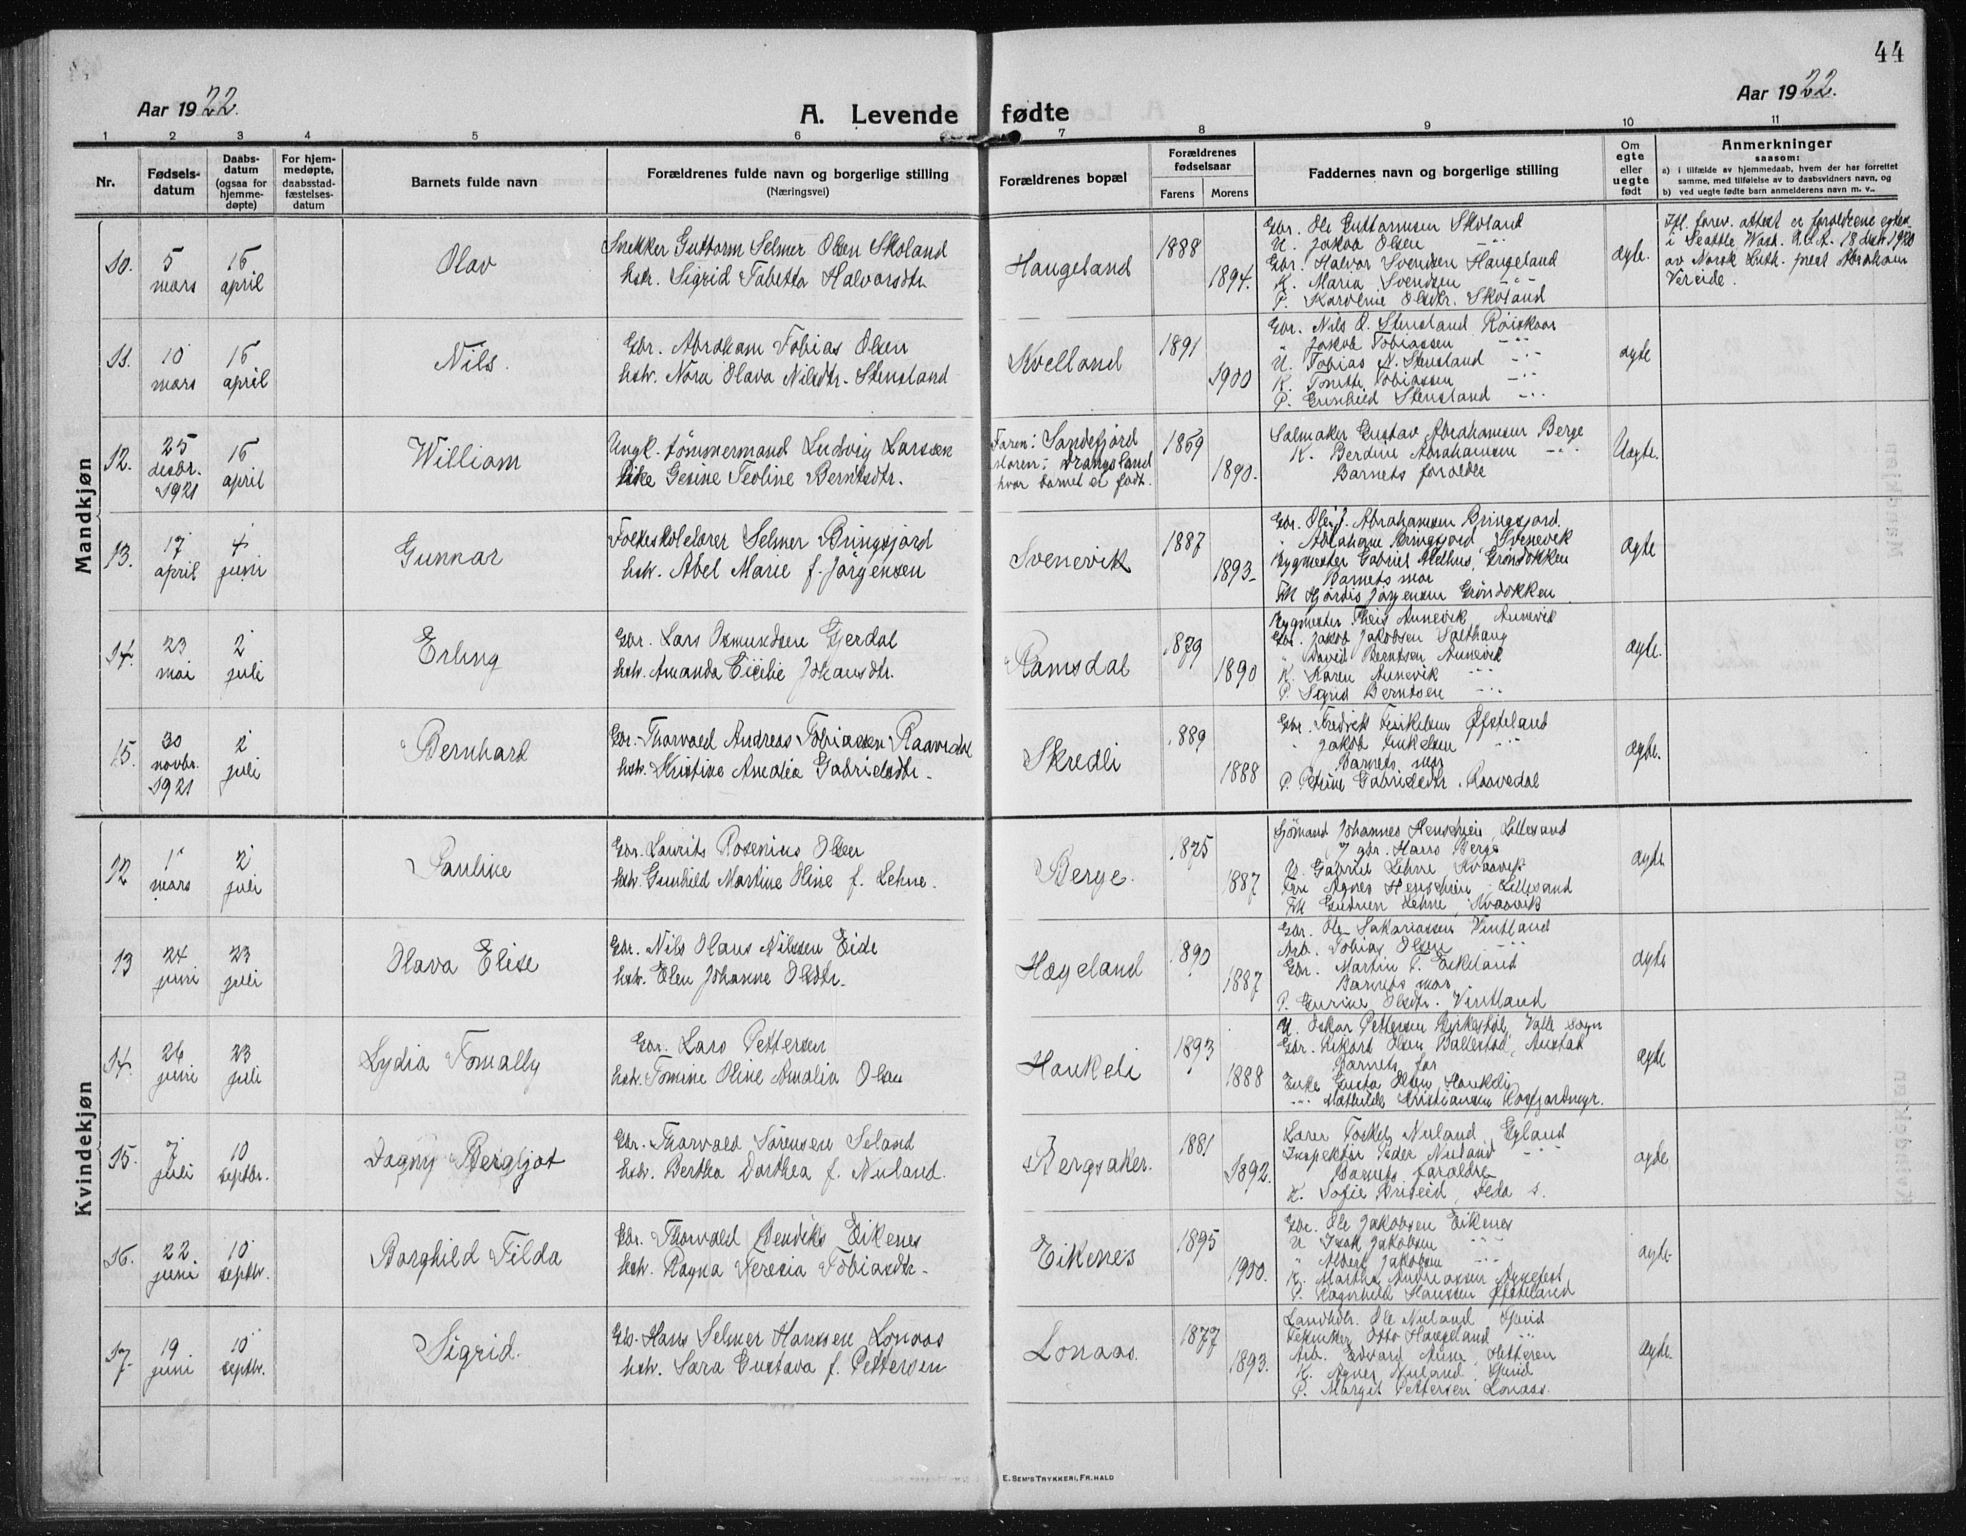 44
Aar 1922.
A. Levende fødte
Aar 1922.
1 2 3 4 5 6 7 8 9 10 11
Nr.
Fødsels-
datum
Daabs-
datum
(ogsaa for
hjemme-
døpte)
For hjem-
medøpte,
daabsstad-
fæstelses-
datum
Barnets fulde navn
Forældrenes fulde navn og borgerlige stilling
(Næringsvei)
Forældrenes bopæl
Forældrenes
fødselsaar
Farens Morens
Faddernes navn og borgerlige stilling
Om
egte
eller
uegte
født
Anmerkninger
saasom:
a) i tilfælde av hjemmedaab, hvem der har forrettet
samme, med tilføielse av to daabsvidners navn, og
b) ved uegte fødte barn anmelderens navn m. v..
Mandkjøn
10.
5
mars
16
april
Olav
Snekker Guttorm Selmer Olsen Skoland
hstr. Sigrid Tabetta Halvorsdtr.
Haugeland
1888
1894.
Gbr. Ole Guttormsen Skoland
U. Jakob Olsen -"-
Gbr. Halvor Svendsen Haugeland
K. Maria Svendsen -"-
P. Karoline Olsdtr. Skoland
ægte.
Ifl. forev. attest er forældrene egtev.
i Seattle, Wash. U.S.A. 18 1920
av Norsk Luth. prest Abraham
Vereide.
11.
10
mars
16
april
Nils.
Gbr. Abraham Tobias Olsen
hstr. Nora Olava Nilsdtr. Stensland
Kvelland
1891
1900
Gbr. Nils O. Stensland Røiskaar
" Jakob Tobiassen -"-
U. Tobias N. Stensland -"-
K. Tonette Tobiassen -"-
P. Gunhild Stensland -"-
ægte
12.
25
desbr.
1921
16
april
William
Ungk. tømmermand Ludvig Larsen
Pike Gesine Teoline Berntsdtr.
Faren: Sandefjord
Moren: Drangsland
hvor barnet er født.
1869
1890.
Salmaker Gustav Abrahamsen Berge
K. Berdine Abrahamsen -"-
Barnets forældre
Uægte.
13.
17
april
4
juni
Gunnar
Folkeskolelærer Selmer Bringsjord
hstr. Abel Marie f. Jørgensen
Svenevik
1887
1893.
Gbr. Ole J. Abrahamsen Bringsjord.
" Abraham Bringsjord Svenevik
Bygmester Gabriel Melhus, Grøndokken
Barnets mor
Frk Hjørdis Jørgensen Grøndokken
ægte
14.
23
mai
2
juli
Erling
Gbr. Lars Osmundsen Gjerdal
hstr. Amanda Cicilie Johansdtr.
Ramsdal
1879
1890
Bygmester Theis Aunevik Aunevik
Gbr. Jakob Jakobsen Salthaug
" David Berntsen Aunevik
K. Karen Aunevik -"-
P. Signe Berntsen -"-
ægte.
15.
30
novbr.
1921
2
juli
Bernhard
Gbr. Thorvald Andreas Tobiassen Raavedal
hstr. Kristine Amalia Gabrielsdtr.
Skredli
1889
1888
Gbr. Fredrik Terkelsen Øfsteland
" Jakob Terkelsen -"-
Barnets mor
P. Petrine Gabrielsdtr. Raavedal
ægte.
Kvindekjøn
12
1
mars
2
juli
Pauline
Gbr. Laurits Rosenius Olsen
hstr. Gunhild Martine Oline f. Lehne.
Berge.
1875
1887
Sjømand Johannes Henschien Lillesand
F. gbr. Hans Berge
U. Gabriel Lehne Kvaavik
Fru Agnes Henschien Lillesand
Frk Gudrun Lehne, Kvaavik
ægte
13
24
juni
23
juli
Olava Elise
Gbr. Nils Olaus Nilssen Eide
hstr. Elen Johanne Olsdtr.
Hægeland
1890
1887
Gbr. Ole Sakariassen Vintland
Arb. Tobias Olsen -"-
Gbr. Martin T. Eikeland
Barnets mor
P. Gurine Olsdtr. Vintland
ægte
14.
26
juni
23
juli
Lydia Tomally
Gbr. Lars Pettersen
hstr. Tomine Oline Amalia Olsen
Haukeli
1893
1888
U. Oskar Pettersen Birkestøl, Valle sogn
Gbr. Rikard Olsen Ballestad, Austad
Barnets far
Enke Gusta Olsen, Haukeli
-"- Mathilde Kristiansen Rosfjordmyr.
ægte
15.
7
juli
10
septbr.
Dagny Bergljot
Gbr. Thorvald Sørensen Seland
hstr. Bertha Dorthea f. Nuland.
Bergsaker.
1881
1892.
Lærer Torkel Nuland, Egland
Inspektør Peder Nuland -"-
Barnets forældre
K. Sofie Briseid, Feda s.
ægte
16.
22
juni
10
septbr.
Borghild Tilda
Gbr. Thorvald Bendiks Eikenes
hstr. Ragna Teresia Tobiasdtr.
Eikenes
1895
1900.
Gbr. Ole Jakobsen Eikenes
U Isak Jakobsen -"-
" Albert Jakobsen -"-
K. Martha Andreassen
P. Ragnhild Hansen Øfsteland
ægte.
17.
19
juni
10
septbr.
Sigrid.
Gb. Hans Selmer Hansen Lonaas
hstr. Sara Gustava f. Pettersen
Lonaas.
1877
1893.
Landhdl. Ole Nuland Spind
Tekniker Otto Haugeland "
Arb. Edvard Aune, Hitterøen
K. Agnes Nuland, Spind
P. Margit Pettersen Lonaas.
ægte.
E. SEM'S TRYKKERI, FR.HALD